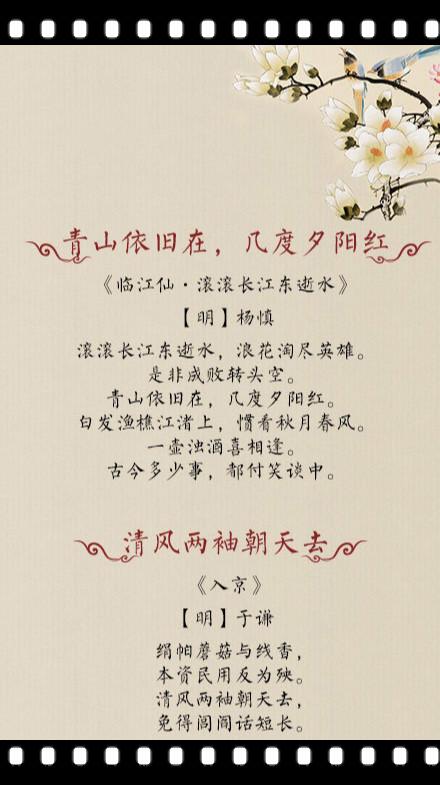 青山依旧在，几度夕阳红
《临江仙·滚滚长江东逝水》
【明】杨慎
滚滚长江东逝水，浪花淘尽英雄。
是非成败转头空。
青山依旧在，几度夕阳红。
白发渔樵江渚上，惯看秋月春风。
一壶浊酒喜相逢。
古今多少事，都付笑谈中。
清风两袖朝天去
《入京》
【明】于谦
绢帕蘑菇与线香，
本资民用反为殃。
清风两袖朝天去，
免得闾阎话短长。